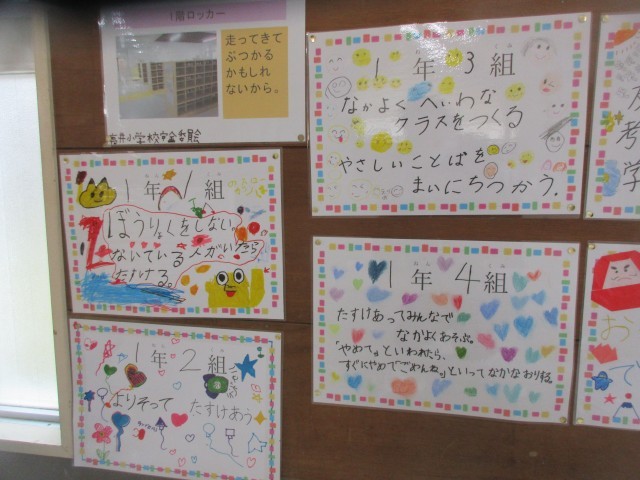 1階ロッカー
走ってきて
ぶつかる
かもしれ
ないから。
1年3組
なかよく へいわな
クラスをつくる
やさしいことばを
まいにちつかう。
1年1組
ぼうりょくをしない。
ないている人がいたら、
たすける。
1年4組
たすけあってみんなで
なかよくあそぶ。
「やめて。」といわれたら、
すぐにやめてごめんね。」といってなかなおりする。
1年2組
よりそって
たすけあう
考
学
お
で